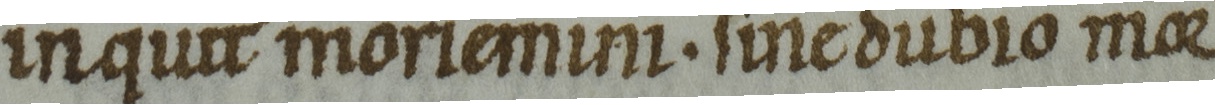 inquit moriemini. sine dubio mor